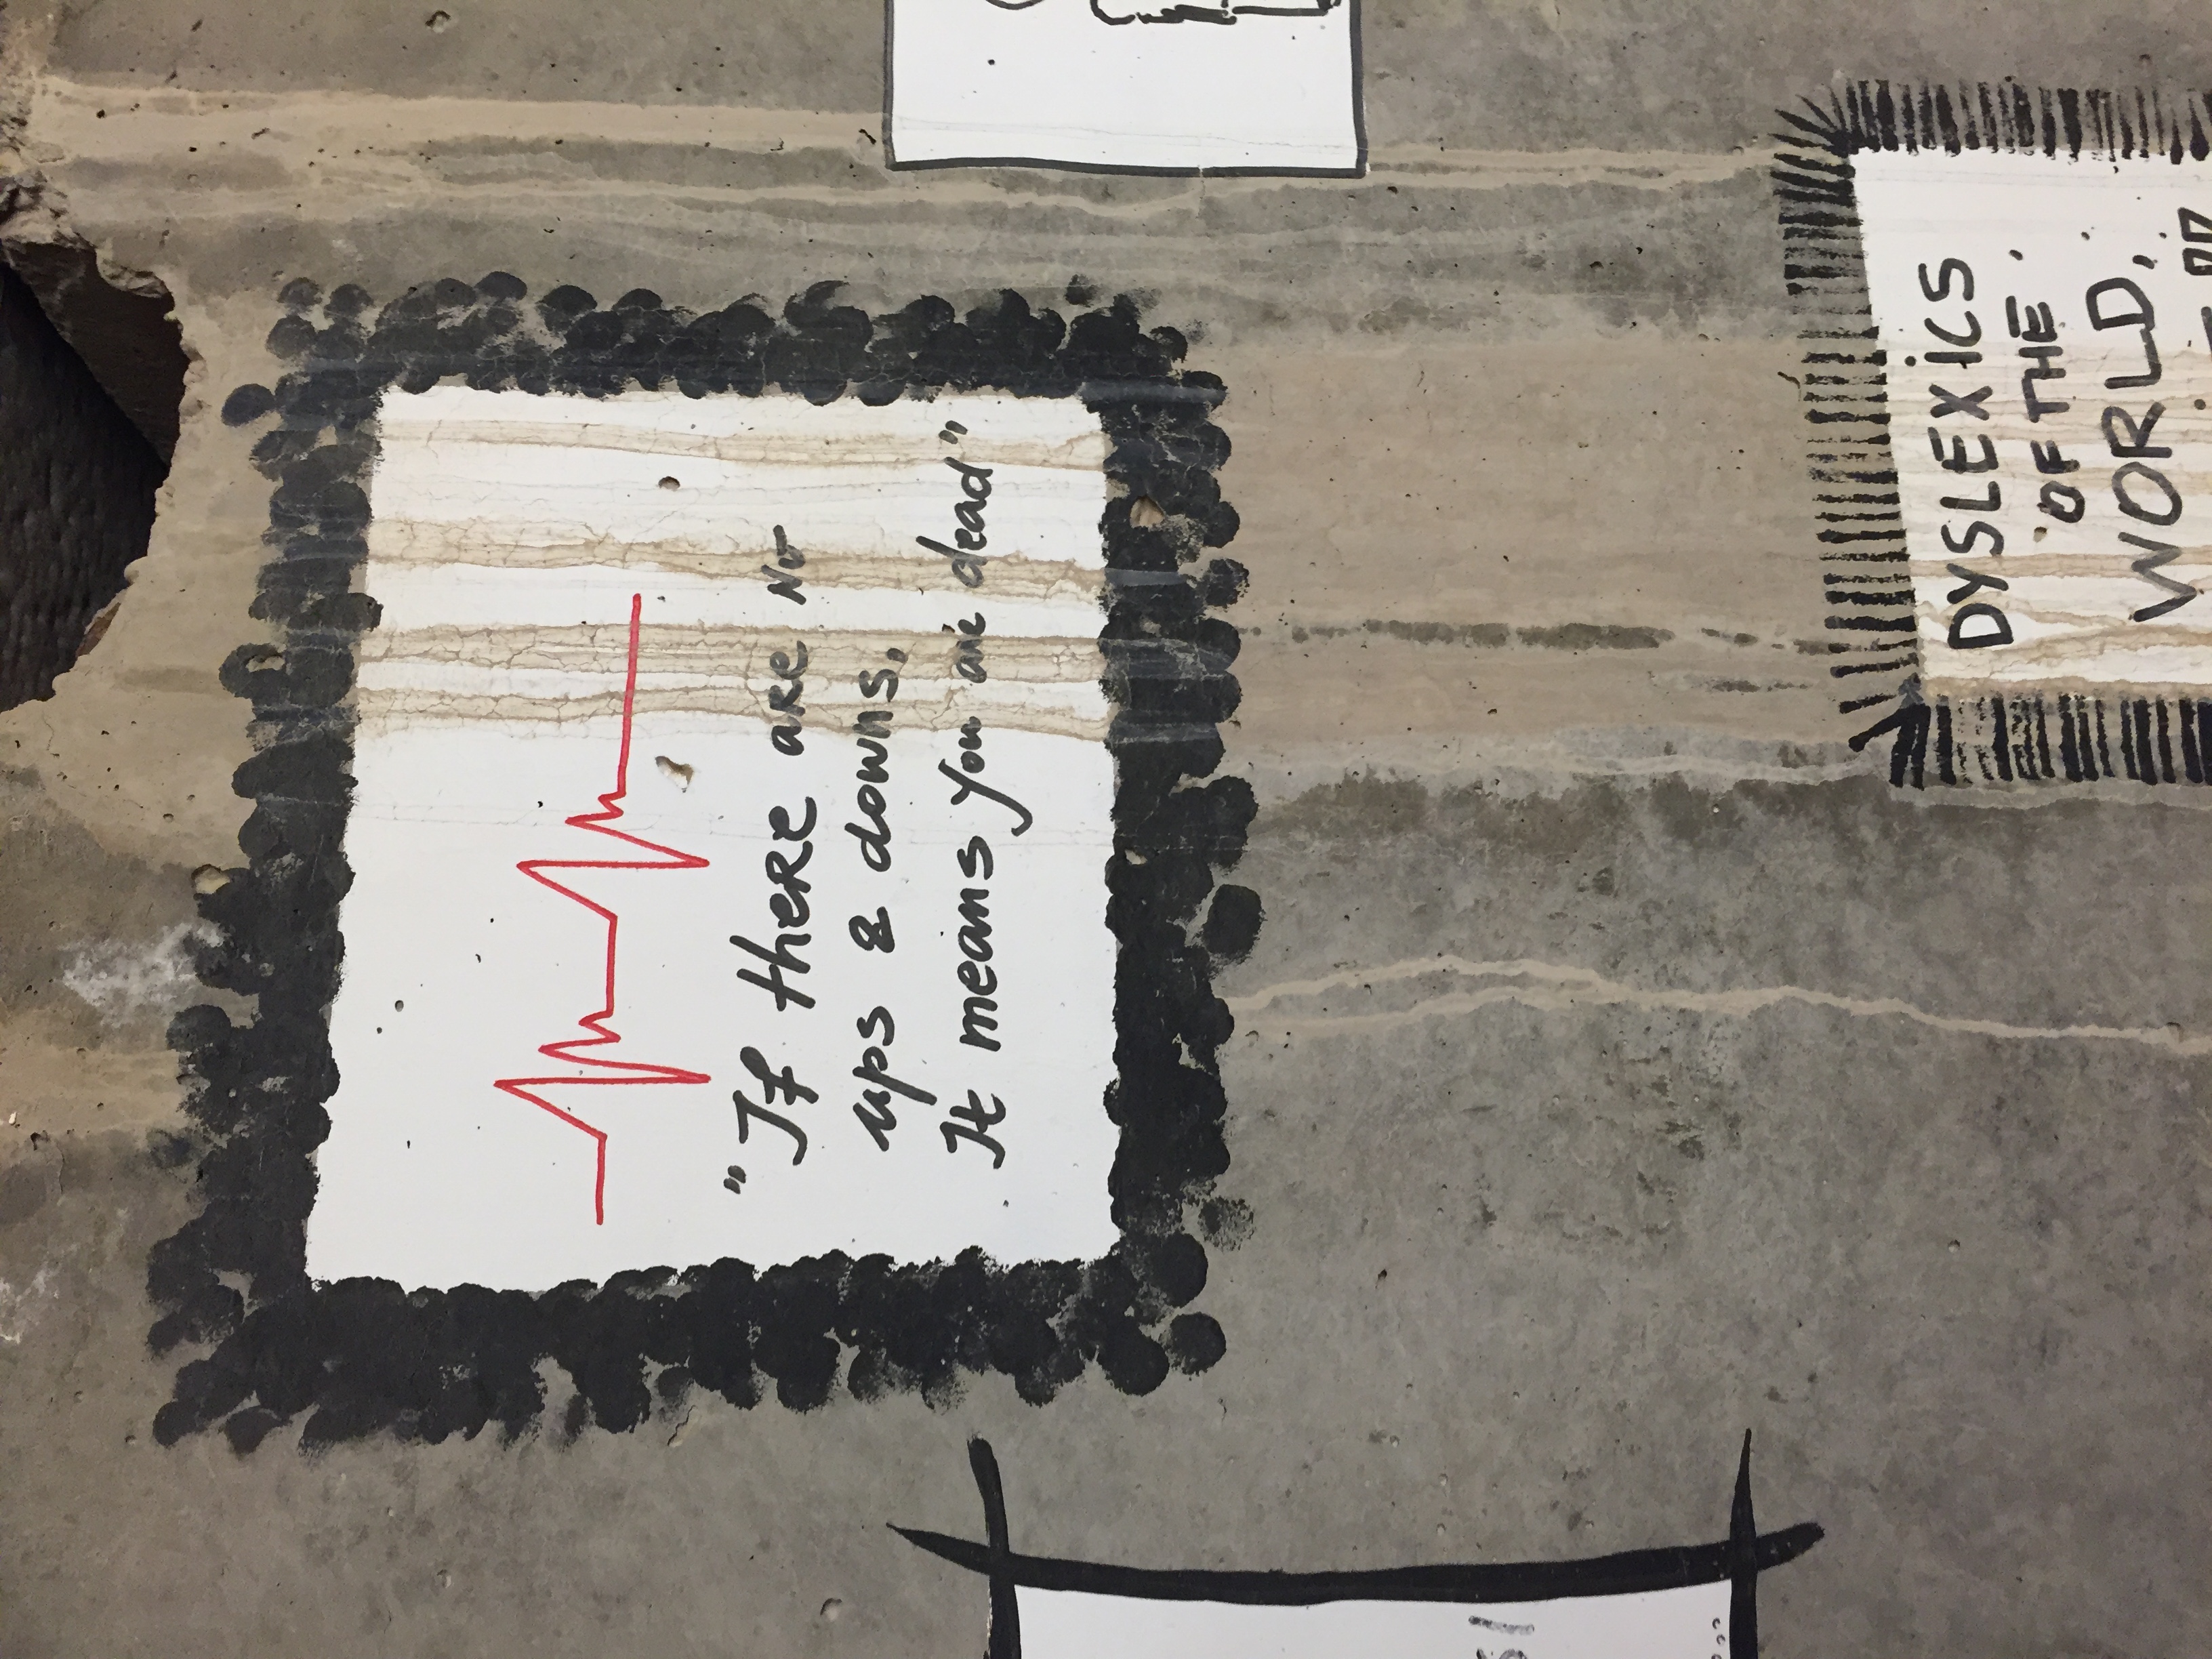 "If there are no
ups & downs,
It means you are dead"
DYSLEXiCS
OF THE
WORLD,